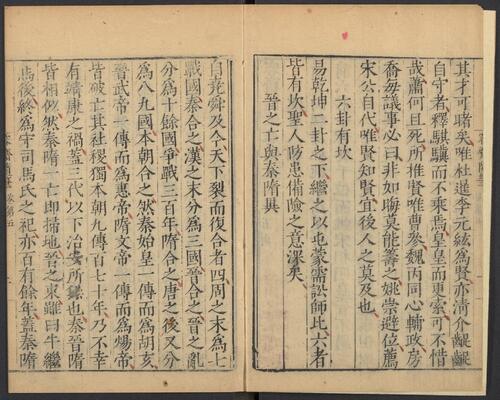 其才可睹矣唯杜暹李元紘為賢亦清介齪齪
自守者釋騏驥而不乘焉皇皇而更索可不惜
哉蕭何且死所推賢唯曹參魏丙同心輔政房
喬每議事必曰非如晦莫能籌之姚崇避位薦
宋公自代唯賢知賢宜後人之莫及也
六卦有坎
易乾坤二卦之下繼之以屯蒙需訟師比六者
皆有坎聖人防患備險之意深矣
晉之亡與秦隋異
自堯舜及今天下裂而復合者四周之末為七
戰國秦合之漢之末分為三國晉合之晉之亂
分為十餘國爭戰三百年隋合之唐之後又分
為八九國本朝合之然秦始皇一傳而為胡亥
晉武帝一傳而為惠帝隋文帝一傳而為煬帝
皆破亡其社稷獨本朝九傳百七十年乃不幸
有靖康之禍蓋三代以下治安所無也秦晉隋
皆相似然秦隋一亡即掃地晉之東雖曰牛繼
馬後終為守司馬氏之祀亦百有餘年蓋秦隋